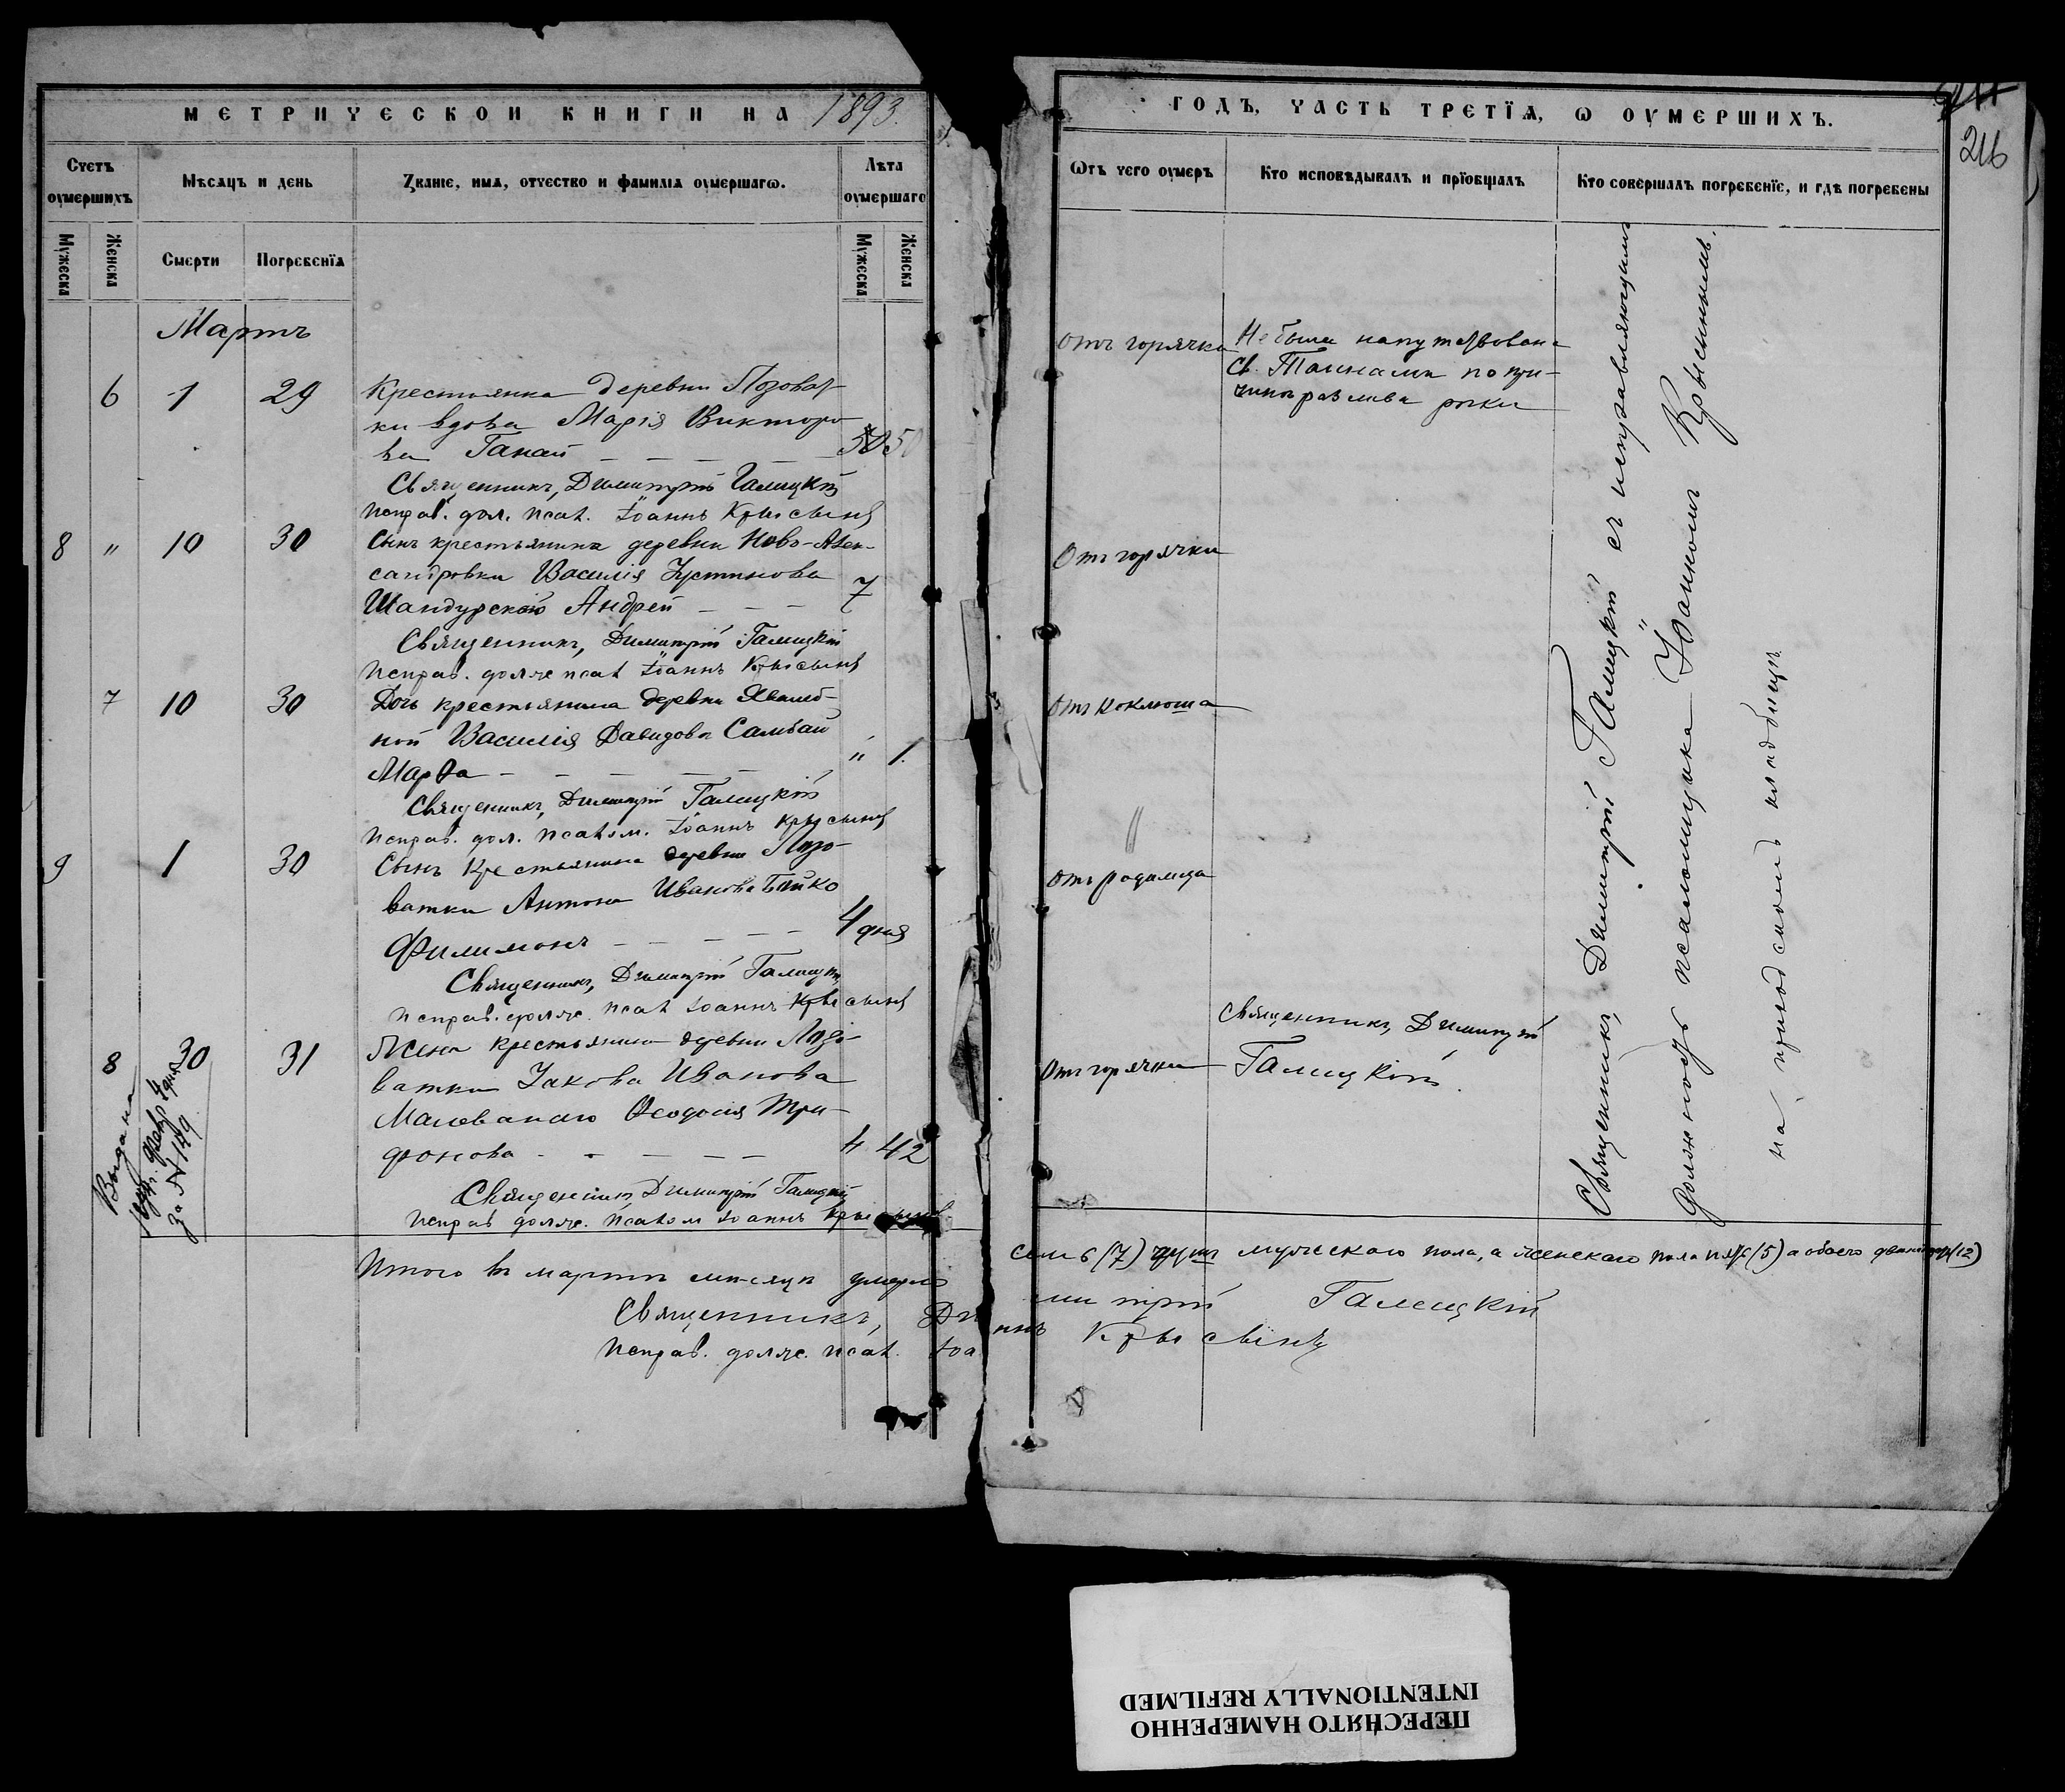 МЕТРИЧЕСКОЙ КНИГИ НА 1893.
Счетъ оумершихъ
Мѣсяцъ и день
Званіе, имя, отчество и фамилія оумершагω.
Лѣта оумершаго
Мужеска
Женска
Смерти
Погребенія
Мужеска
Женска
Мартъ
6 1 29 Крестьянка деревни Лозоват-
ки вдова Марія Викторо-
ва Ганай 50 50
Священникъ, Димитрій Галицкій
Исправ. дол. псал. Іоаннъ Крысинъ
8 " 10 30 Сынъ крестьянина деревни Ново-Алек-
сандровки Василія Устинова
Шандурскаго Андрей 7
Священникъ, Димитрій Галицкій
Исправ. долж псал Іоаннъ Крысинъ
7 10 30 Дочь крестьянина деревни
ной Василія Давидова
Марѳа " 1.
Священникъ, Димитрій Галицкій
Исправ. дол. псалом. Іоаннъ Крысинъ
9 1 30 Сынъ крестьянина деревни Лозо-
ватки Антона Иванова Бойко
Филимонъ 4 дня
Священникъ, Димитрій Галицкій
Исправ. долж. псал Іоаннъ Крысинъ
8 30 31 Жена крестьянина деревни Лозо-
ватки Іакова Иванова
Малованаго Ѳеодосія Три-
фонова 4 42
Священникъ Димитрій Галицкій
Исправ долж. псалом Іоаннъ
Выдана
4 дня
за № 149
Итого въ мартѣ мѣсяцѣ умерло
Священникъ, Ди
Исправ. долж. псал. Іоа
ГОДЪ, ЧАСТЬ ТРЕТІЯ, Ѡ ОУМЕРШИХЪ.
216
Ѿтъ чего оумеръ
Кто исповѣдывалъ и пріобщалъ
Кто совершалъ погребеніе, и гдѣ погребены
Отъ горячки
Не была напутствована
Св. Тайнами по при-
чинѣ разлива рѣки
Отъ горячки
Отъ коклюша
"
Отъ родимца
Отъ горячки
Священникъ, Димитрій
Галицкій.
Священникъ, Димитрій Галицкій съ исправляющимъ
должность псаломщика Іоанномъ Крысинымъ.
на приходскомъ кладбищѣ
семь (7) душъ мужескаго пола, а женскаго пола пять (5) а обоего двенадцать (12)
митрій Галицкій
ннъ Крысинъ
ПЕРЕСНЯТО НАМЕРЕННО
INTENTIONALLY REFILMED